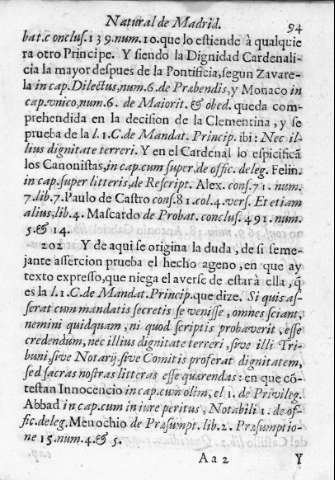 Natural de Madrid. 94
bat.conclus.139.num.10.que lo estiende à qualquie
ra otro Principe. Y siendo la Dignidad Cardenali-
cia la mayor despues de la Pontificia,segun Zavare-
la in cap.Dilectus,num.6.de Præbendis,y Monaco in
cap.vnico,num.6. de Maiorit.& obed. queda com-
prehendida en la decision de la Clementina, y se
prueba de la l.1.C.de Mandat. Princip. ibi: Nec il-
lius dignitate terreri. Y en el Cardenal lo espicificã
los Canonistas,in cap.cum super.de offic.deleg. Felin.
in cap.super litteris,de Rescript. Alex. cons.71. num.
7.lib.7.Paulo de Castro cons.81.col.4.vers. Et etiam
alius,lib.4. Mascardo de Probat. conclus.491.num.
5.& 14.
202 Y de aqui se origina la duda, de si seme-
jante assercion prueba el hecho ageno, en que ay
texto expresso,que niega el averse de estar à ella, q̃
es la l.1.C.de Mandat.Princip.que dize. Si quis as-
serat cum mandatis secretis se venisse, omnes sciant,
nemini quidquam, ni quod scriptis probaverit, esse
credendum, nec illius dignitate terreri, sive illi Tri-
buni,sive Notarij,sive Comitis proferat dignitatem,
sed sacras nostras litteras esse quærendas: en que cõ-
testan Innocencio in cap.cum olim, el 1. de Privileg.
Abbad in cap.cum in iure peritus, Notabili 1. de of-
fic.deleg.Menochio de Præsumpt. lib.2. Præsumptio-
ne 15.num.4.& 5.
Aa2 Y